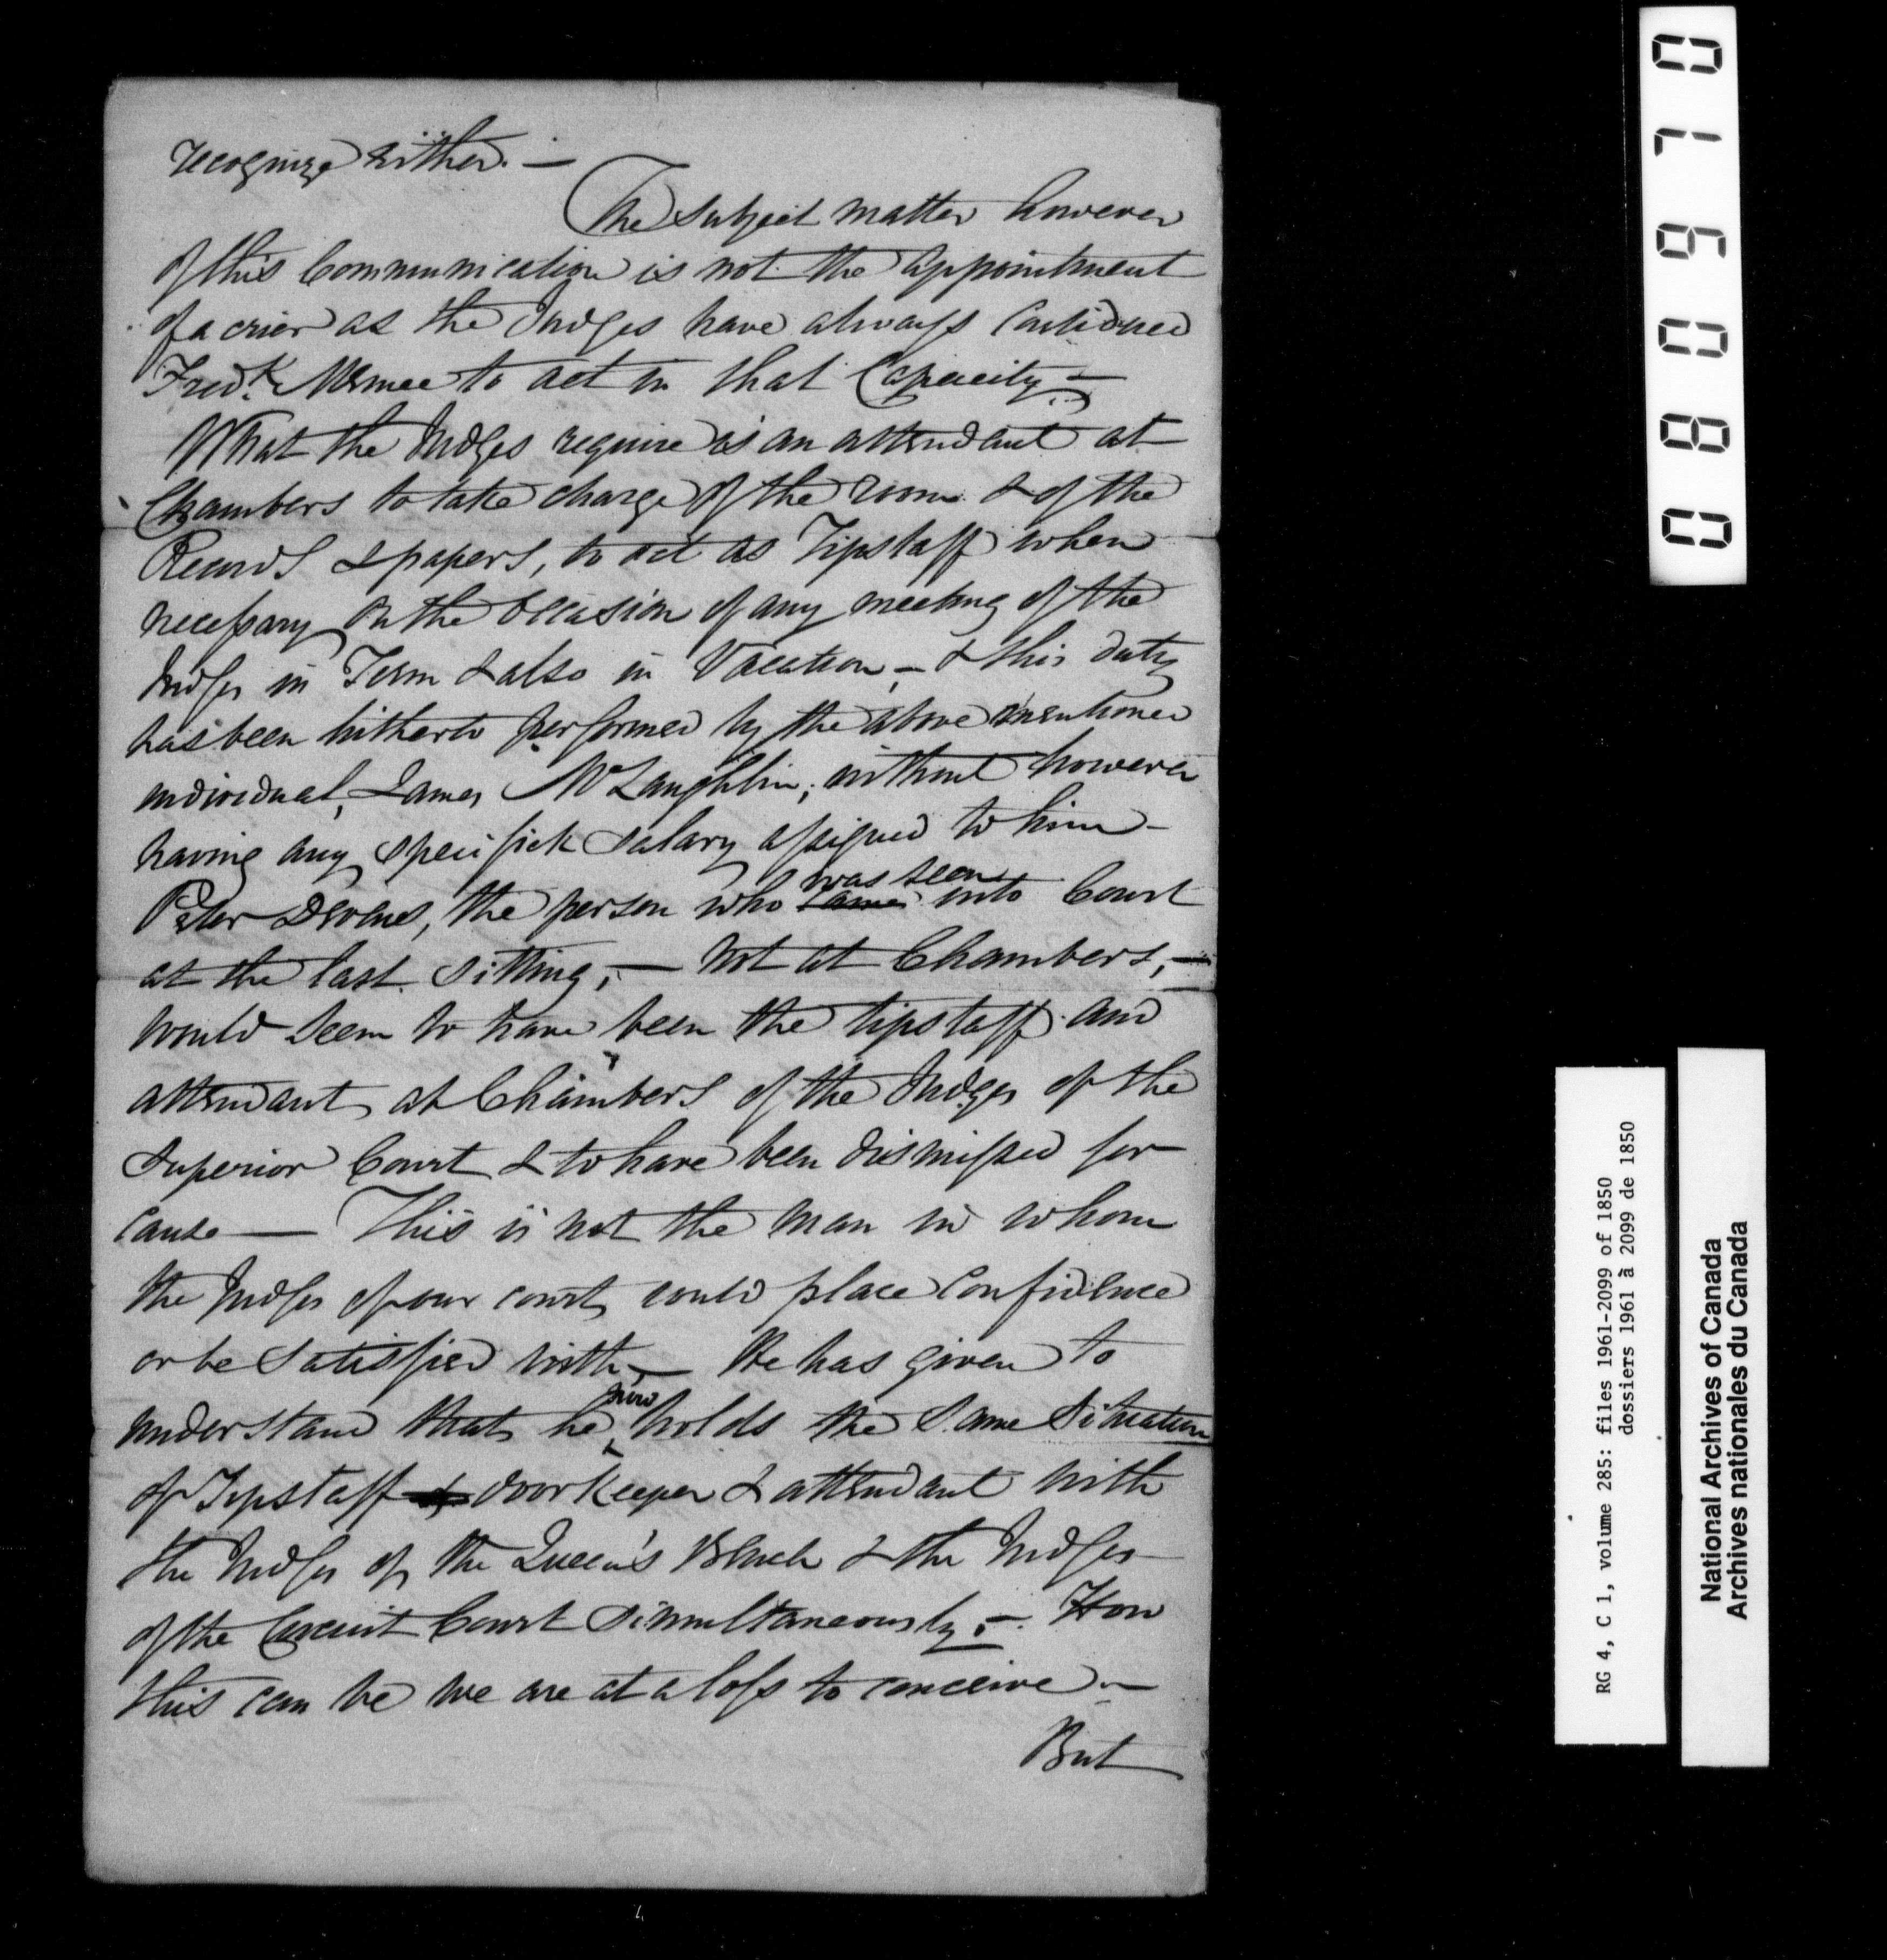 recognize either. —
The subject matter however
of this Communication is not the appointment
of a crier as the Judges have always continued
Fredk. to act in that Capacity —
What the Judges require is an attendant at
Chambers to take charge of the room & of the
Records & papers, to act as Tipstaff when
necessary on the occasion of any meeting of the
Judges in Term & also in Vacation, — & this duty
has been hitherto performed by the above mentioned
individual, James McLaughlin, without however
having any specifick salary assigned to him —
Peter Devine, the person who ~~came~~ was seen into Court
at the last sitting, — not at Chambers, —
would seem to have been the tipstaff and
attendant at Chambers of the Judges of the
Superior Court & to have been dismissed for
cause — This is not the man in whom
the Judges of our court could place confidence
or be satisfied with, — He has given to
understand that he now holds the same situation
of Tipstaff doorkeeper & attendant with
the Judges of the Queen's Bench & the Judges
of the Circuit Court simultaneously. — How
this can be we are at a loss to conceive —
But
080970
RG 4, C 1, volume 285: files 1961-2099 of 1850
dossiers 1961 à 2099 de 1850
National Archives of Canada
Archives nationales du Canada